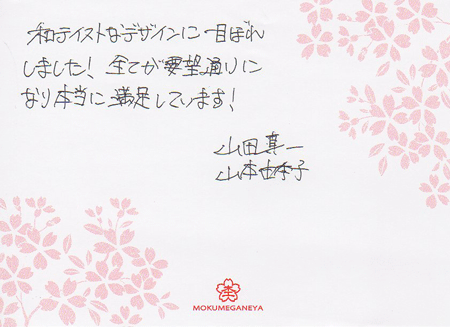 和テイストなデザインに一目ぼれ
しました！ 全てが要望通りに
なり本当に満足しています！
山田真一
山本由季子
MOKUMEGANEYA